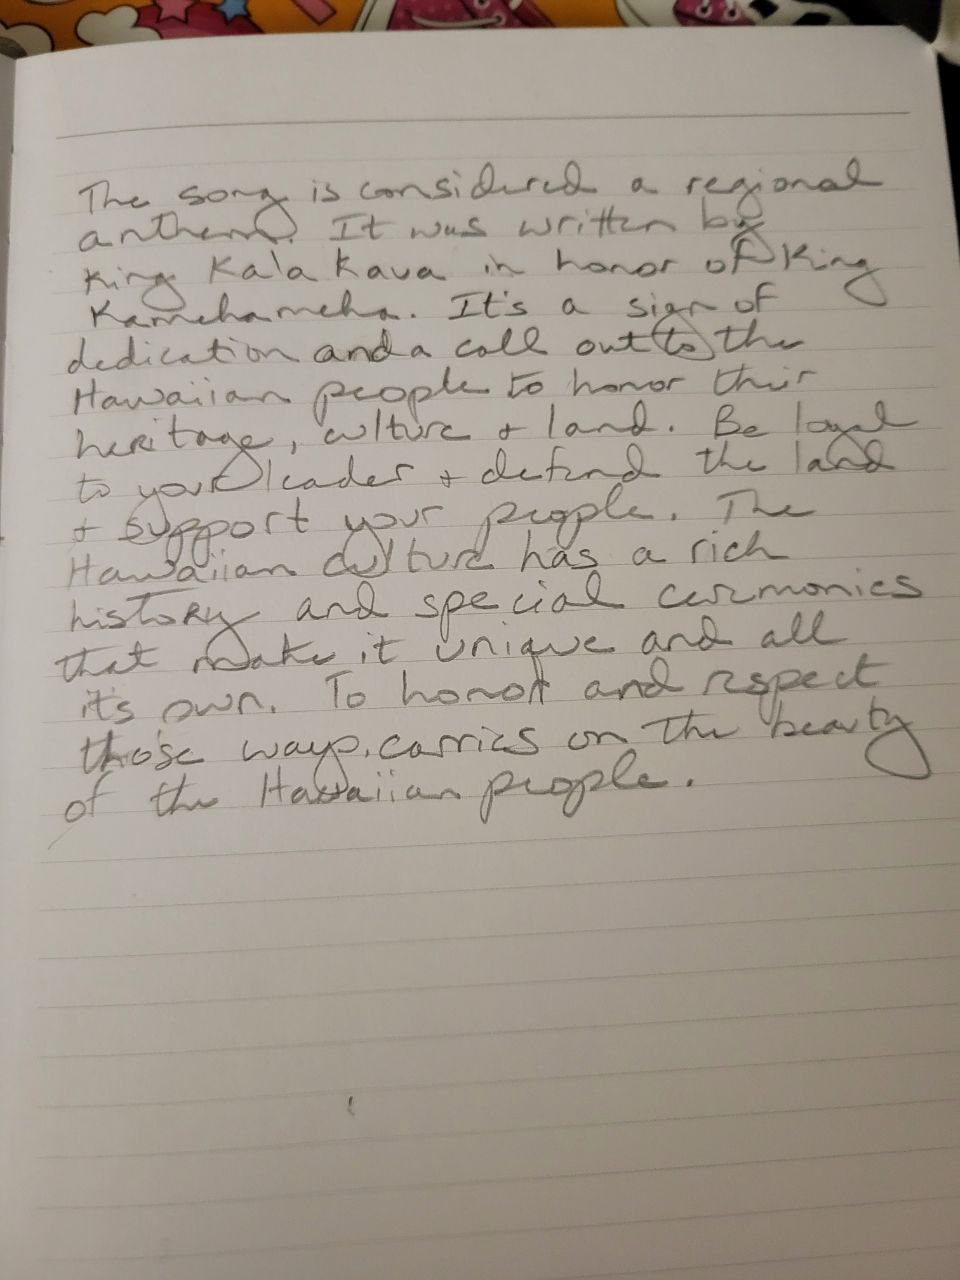 The song is considered a regional
anthem. It was written by
King Kala Kaua in honor of King
Kamehameha. It's a sign of
dedication and a call out to the
Hawaiian people to honor their
heritage, culture + land. Be loyal
to your leader + defend the land
+ support your people. The
Hawaiian culture has a rich
history and special cermonies
that make it unique and all
it's own. To honor and respect
those ways, carries on the beauty
of the Hawaiian people.